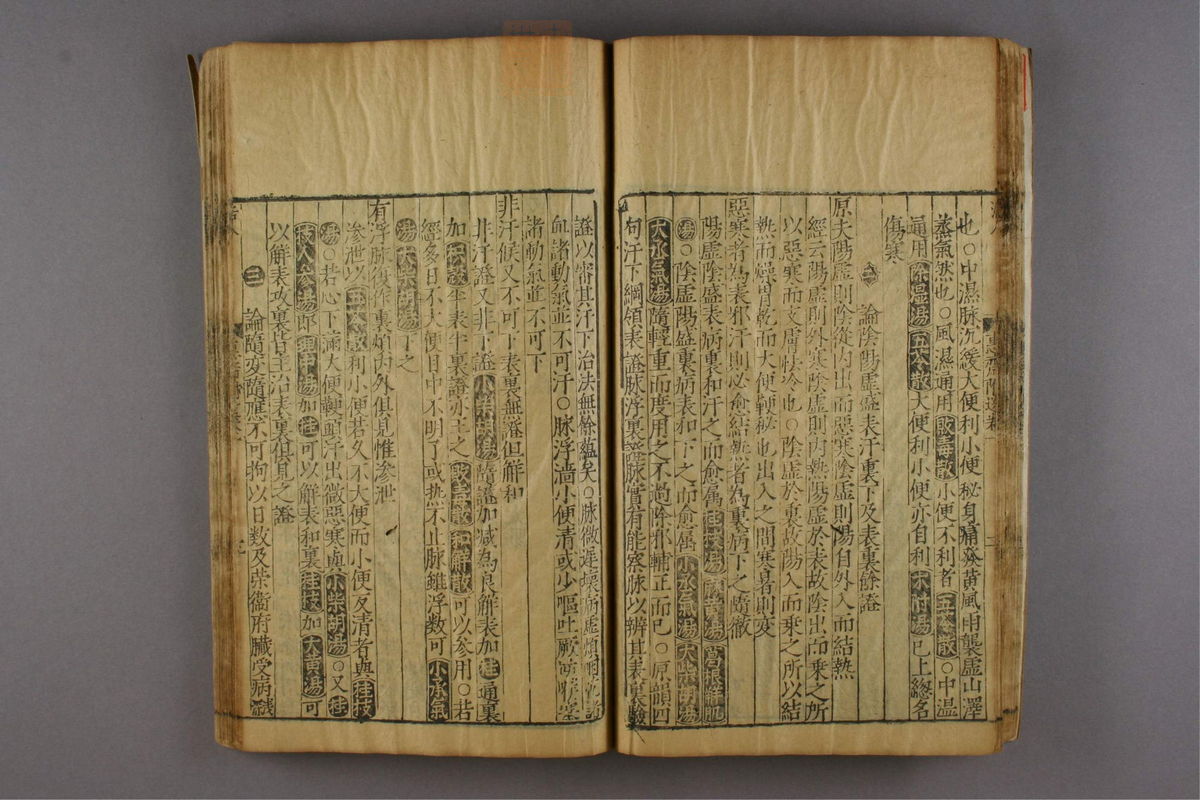 也○中濕脉沉緩大便利小便秘身痛發黃風雨襲虛山澤
蒸氣然也○風濕通用敗毒散小便不利者五苓散○中温
通用除湿湯五苓散大便利小便亦自利术附湯已上總名
傷寒
二 論陰陽虛盛表汗裏下及表裏餘證
原夫陽虛則陰從内出而惡寒陰虛則陽自外入而結熱
經云陽虛則外寒陰虛則内熱陽虛於表故陰出而乗之所
以惡寒而文膚怯冷也○陰虛於裏故陽入而乗之所以結
熱而燥胃乾而大便鞕秘也出入之間寒暑則变
惡寒者為表邪汗則必愈結熱者為裏病下之
陽虛陰盛表病裏和汗之而愈属桂枝湯麻黃湯葛根觧肌
湯○陰虛陽盛裏病表和下之而愈属小承氣湯大柴胡湯
大承氣湯隨輕重而度用之不過除邪輔正而已○原韻四
句汗下綱領表證脉浮裏證脉實有能察脉以辨其表裏驗
證以審其汗下治法無餘蘊矣○脉微遲壞病虛煩
血諸動氣並不可汗○脉浮小便清或少嘔吐厥
諸動氣並不可下
非汗候又不可下表裏無證但觧和
非汗證又非下證小柴胡湯隨證加减為良觧表加桂通裏
加枳殼半表半裏證亦主之敗毒散和觧散可以參用○若
經多日不大便目中不明了或热不止脉雖浮数可小承氣
湯大柴胡湯下之
有浮脉復作裏煩内外俱見惟滲泄
滲泄以五苓散利小便若久不大便而小便反清者與桂枝
湯○若心下痛大便鞕額汗出微惡寒與小柴胡湯○又桂
枝人參湯即理中湯加桂可以觧表和裏桂枝加大黃湯可
以觧表攻裏皆主治表裏俱見之證
三 論隨变隨應不可拘以日数及荣衛府臟受病淺